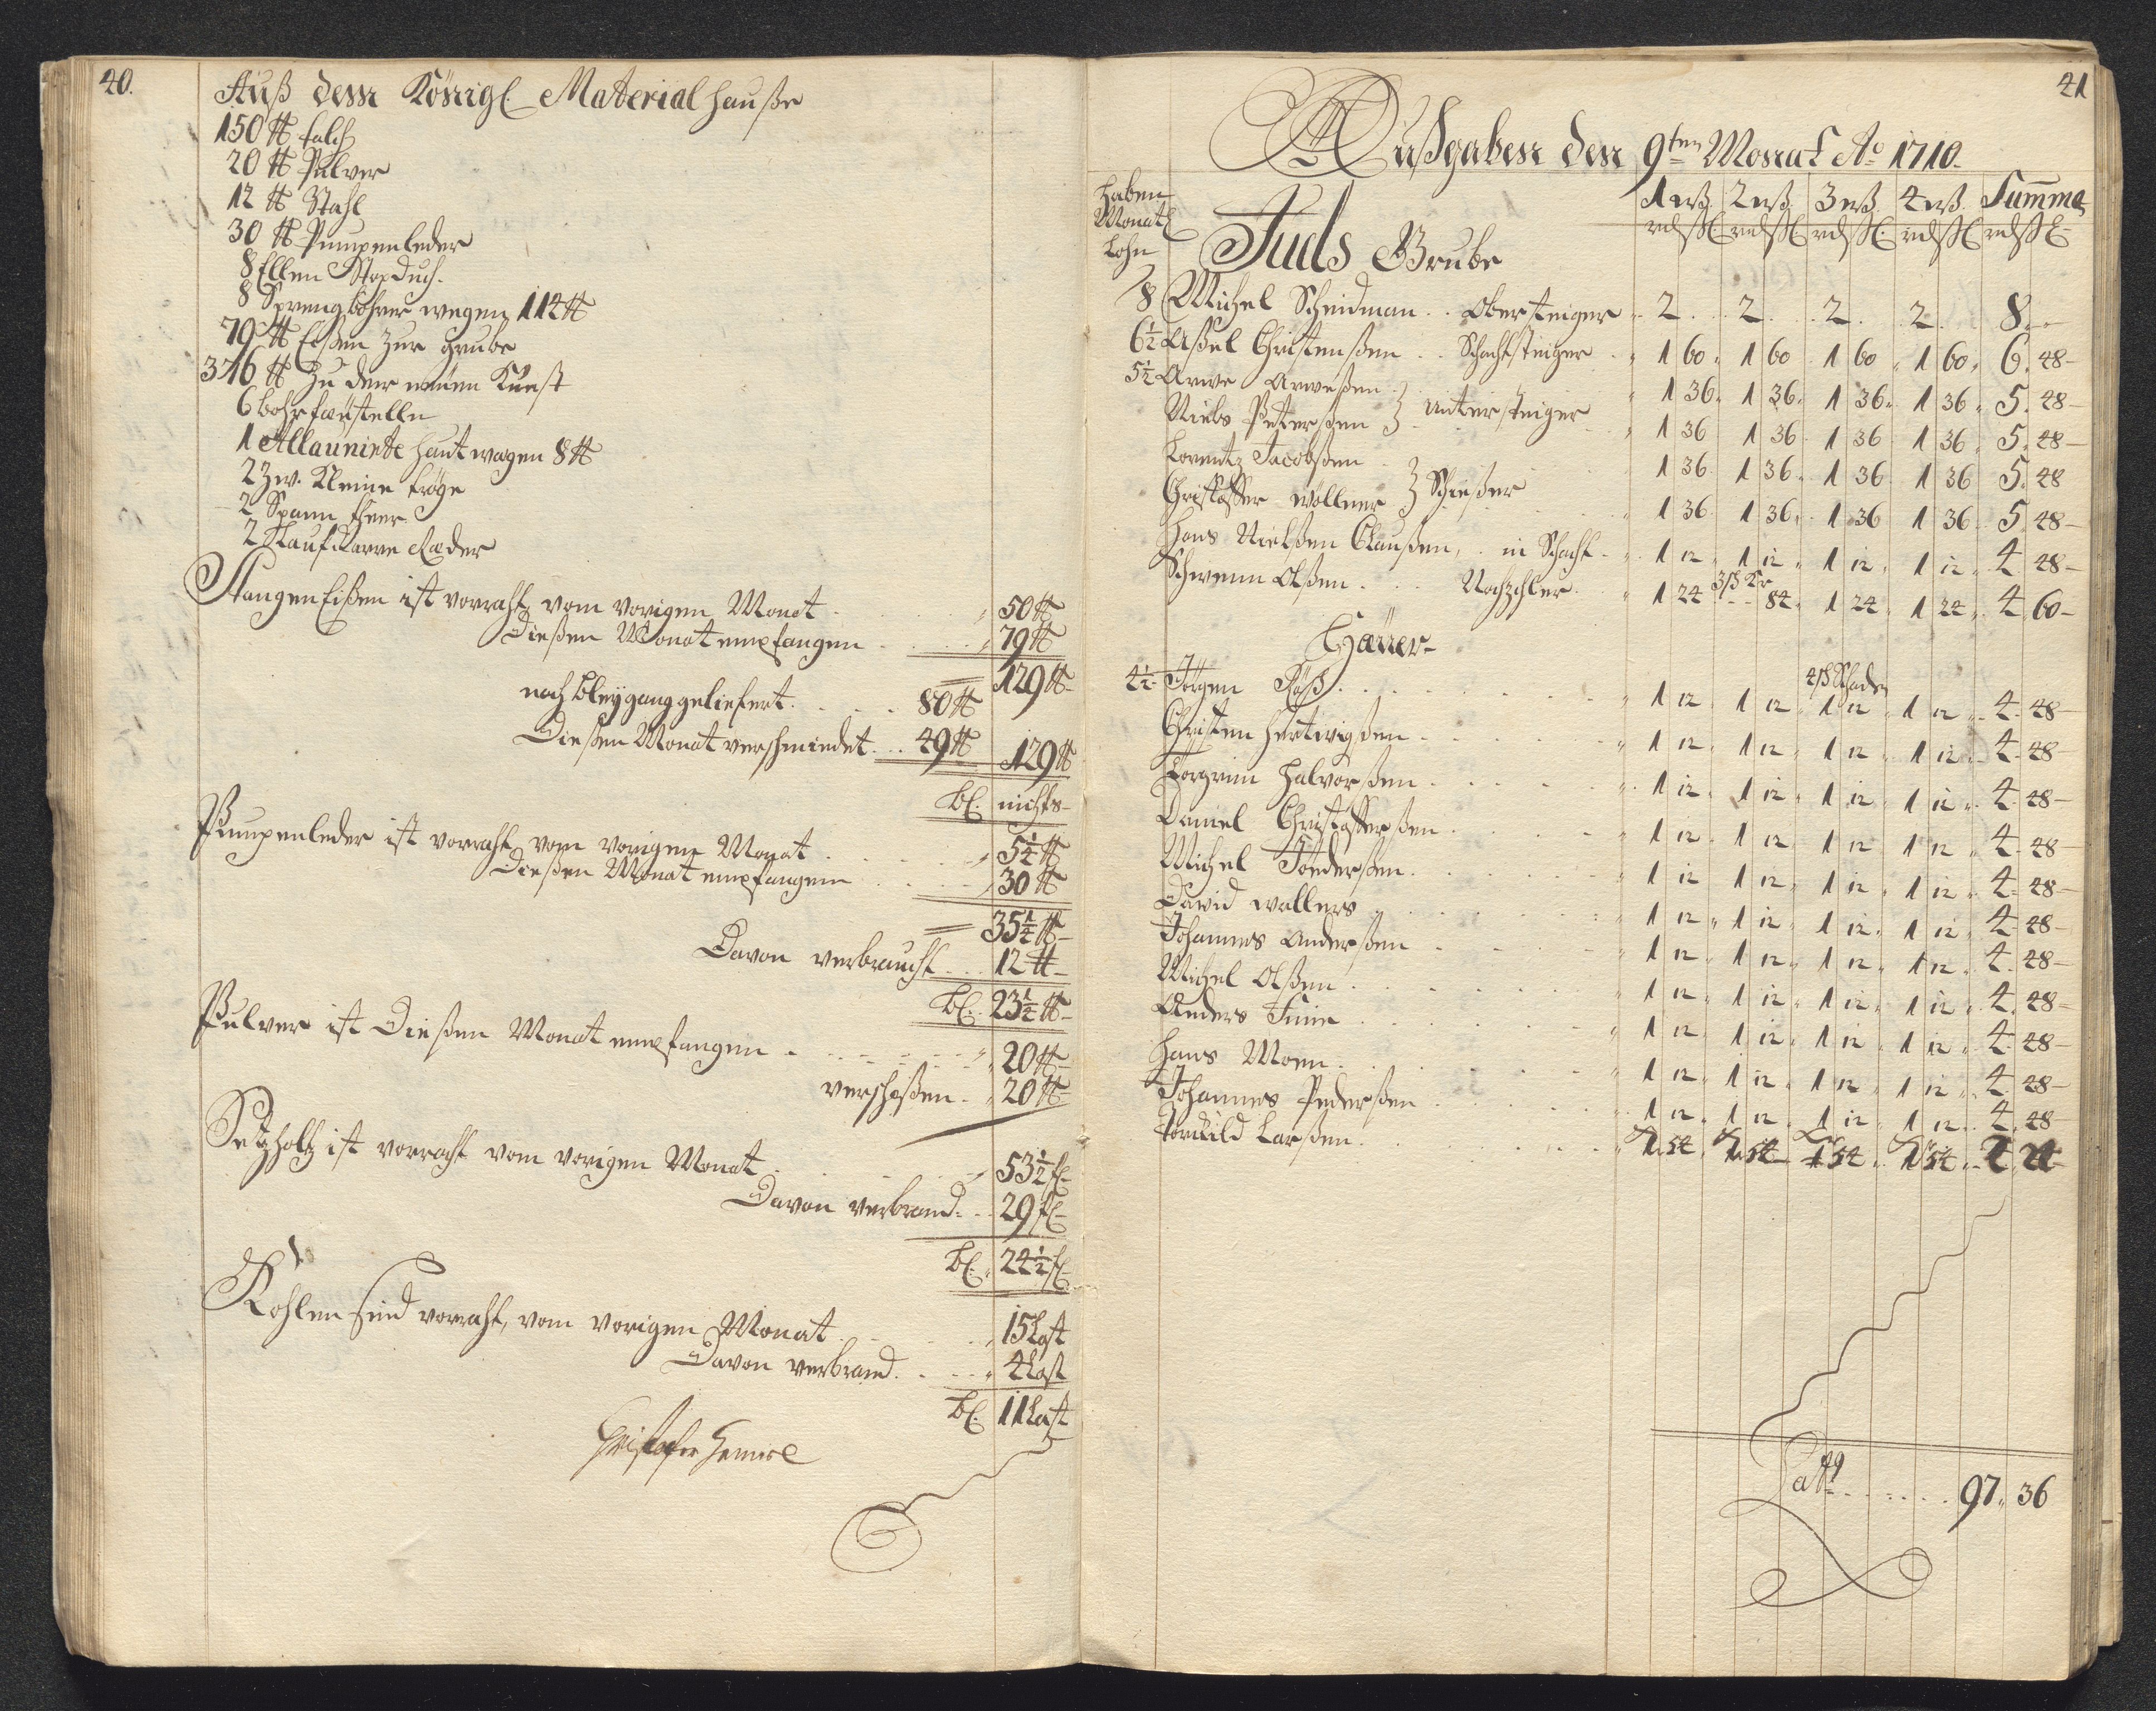 40.
Auß dem Königl. Material Hauße
150 ℔ talch
20 ℔ Pulver
12 ℔ Stahl
30 ℔ Pumpenleder
8 Ellen Stopduch.
8 Sprengböhrer wegen 112 ℔
79 ℔ Eißen Zur grube
316 ℔ Zu der neüen Kunst
6 bohrfäustelln
1 Allaunirte haut wagen 8 ℔
2 Zw. Kleine tröge
2 Spann theer
2 Laufkarre Ræder
Stangen Eißen ist vorraht vom vorigen Monat 50 ℔
Dießen Monat empfangen 79 ℔
129 ℔
noch bleygang geliefert 80 ℔
Dießen Monat verschmiedet 49 ℔ 129 ℔
bl. nichts
Pumpenleder ist vorraht vom vorigen Monat 5 1/4 ℔
Dießen Monat empfangen 30 ℔
35 1/4 ℔
Davon verbraucht 12 ℔
bl. 23 1/4 ℔
Pulver ist Dießen Monat empfangen 20 ℔
verschoßen 20 ℔
Setzholtz ist vorraht vom vorigen Monat 53 1/2 fl
Davon verbrand 29 fl
bl. 24 1/2 fl
Kohlen sind vorraht, vom vorigen Monat 15 Last
Davon verbrand 4 Last
bl. 11 Last
41
Außgaben den 9ten Monat Ao 1710
haben Monatl Lohn
1 wß 2 wß 3 wß 4 wß Summa
rdl ß rdl ß rdl ß rdl ß rdl ß
Juels Grube
8 Michel Scheidman Obersteiger 2 2 2 2 8
6 1/2 Aßel Christenßen Schachtsteiger 1 60 1 60 1 60 1 60 6 48
5 1/2 Arwe Arweßen } untersteiger 1 36 1 36 1 36 1 36 5 48
Niels Peterßen 1 36 1 36 1 36 1 36 5 48
Lorentz Jacobßen } Schießer 1 36 1 36 1 36 1 36 5 48
Christoffer Wöllner 1 36 1 36 1 36 1 36 5 48
Hans Nielßen Claußen, in Schacht 1 12 1 12 1 12 1 12 4 48
Schwenn Olßen Nachzehler 1 24 84 1 24 1 24 4 60
Häuer
4 1/2 Jörgen Röß 1 12 1 12 1 12 1 12 4 48
Christen Hertwigßen 1 12 1 12 1 12 1 12 4 48
Torgrim Halvorßen 1 12 1 12 1 12 1 12 4 48
Daniel Christofferßen 1 12 1 12 1 12 1 12 4 48
Michel Tönderßen 1 12 1 12 1 12 1 12 4 48
David Wallers 1 12 1 12 1 12 1 12 4 48
Johannes Anderßen 1 12 1 12 1 12 1 12 4 48
Michel Olßen 1 12 1 12 1 12 1 12 4 48
Anders Finne 1 12 1 12 1 12 1 12 4 48
Hans Moen 1 12 1 12 1 12 1 12 4 48
Johannes Pederßen 1 12 1 12 1 12 1 12 4 48
Torkild Larßen
Latt 97 36